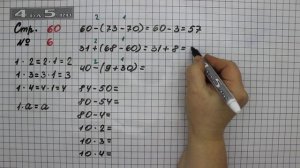 4 5
Стр. 60
№ 6
1 · 2 = 2 · 1 = 2
1 · 3 = 3 · 1 = 3
1 · 4 = 4 · 1 = 4
1 · а = а
2 1
60 - (73 - 70) = 60 - 3 = 57
2 1
31 + (68 - 60) = 31 + 8 =
40 - (9 + 30) =
84 - 50 =
80 - 54 =
80 - 4 =
10 · 2 =
10 · 3 =
10 · 4 =